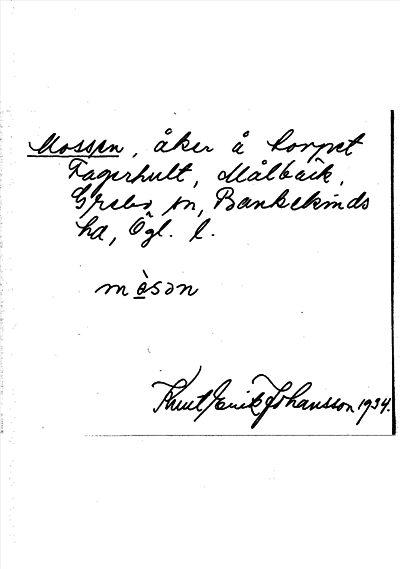 Mossen, åker å torpet
Fagerhult, Målbäck,
Grebo sn, Bankekinds
hd, Ögl. l.
mòsən
Knut Erik Johansson 1934.